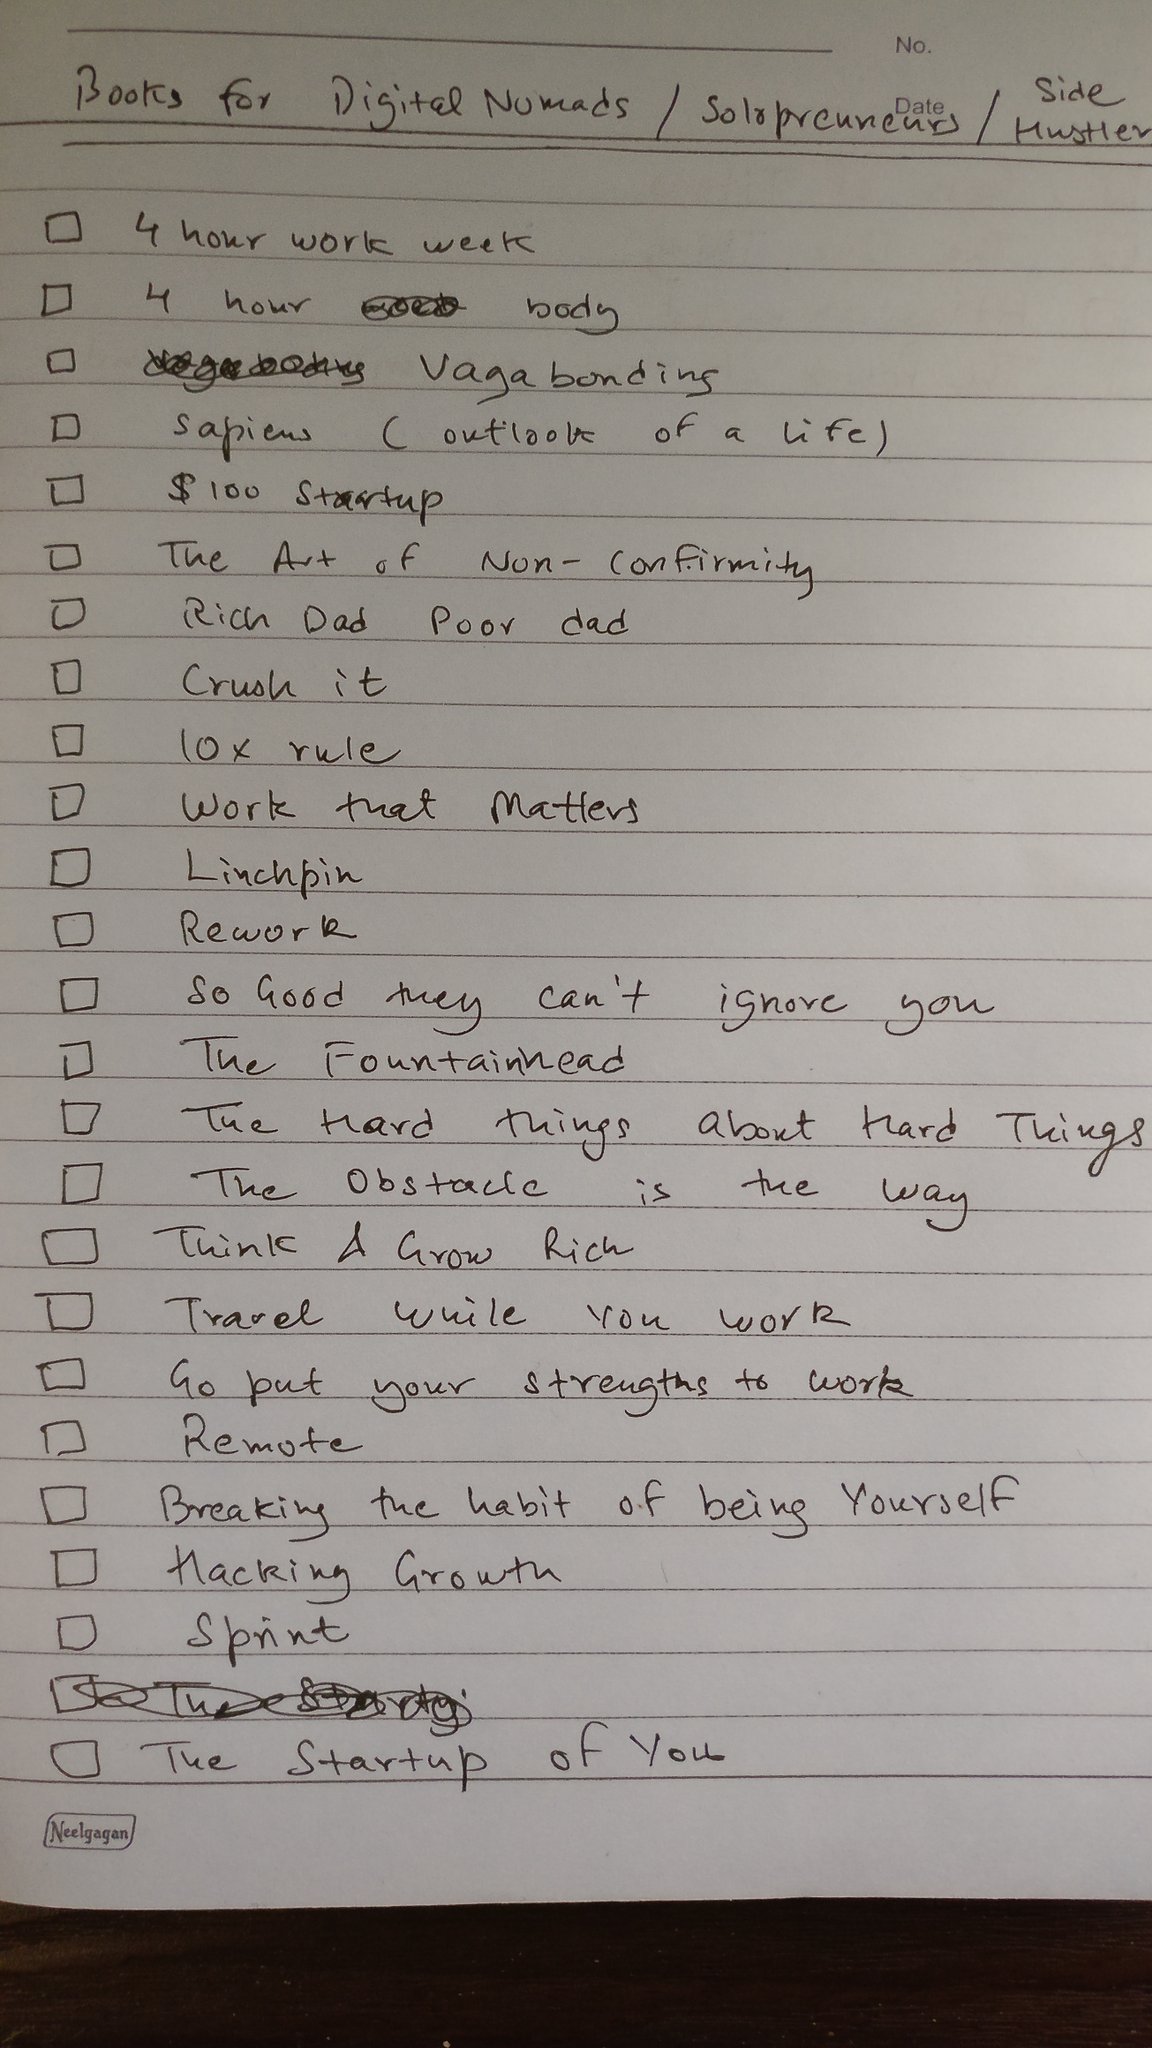 No.
Date
Books for Digital Numads / Solopreuneurs / Side Hustler
4 hour work week
4 hour body
Vagabonding
Sapiens ( outlook of a life)
$100 Startup
The Art of Non-Confirmity
Rich Dad Poor dad
Crush it
10x rule
Work that Matters
Linchpin
Rework
So Good they can't ignore you
The Fountainhead
The Hard things about Hard Things
The Obstacle is the way
Think & Grow Rich
Travel while You work
Go put your strengths to work
Remote
Breaking the habit of being Yourself
Hacking Growth
Sprint
The Startup of You
Neelgagan